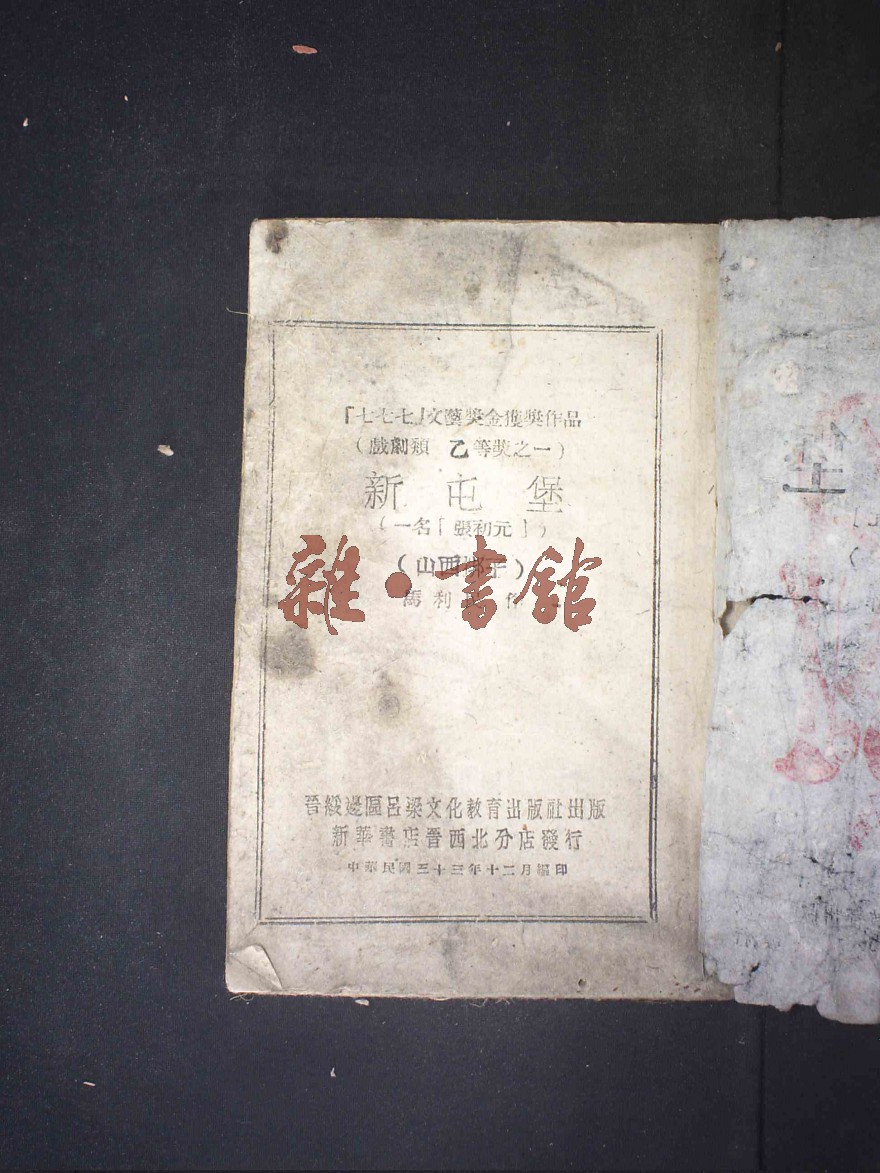 「七七七」文藝獎金獲獎作品
(戲劇類 乙等獎之一)
新屯堡
(一名「張初元」)
(山西梆子)
馬利 作
晉綏邊區呂梁文化教育出版社出版
新華書店晉西北分店發行
中華民國三十三年十二月編印
堡
雜·書館